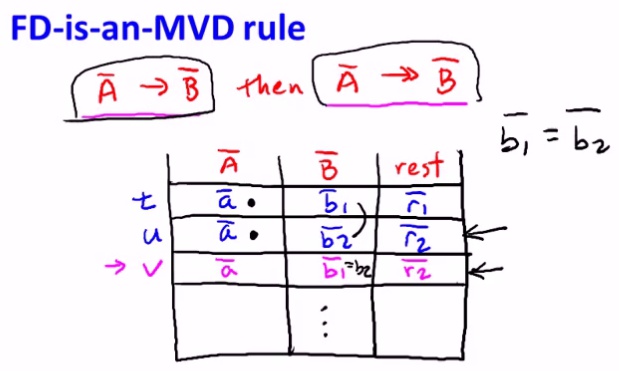 FD-is-an-MVD rule
A̅ → B̅ then A̅ ↠ B̅
b̅₁ = b̅₂
A̅ B̅ rest
t a̅ • b̅₁ r̅₁
u a̅ • b̅₂ r̅₂ ←
→ v a̅ b̅₁=b₂ r̅₂ ←
⋮